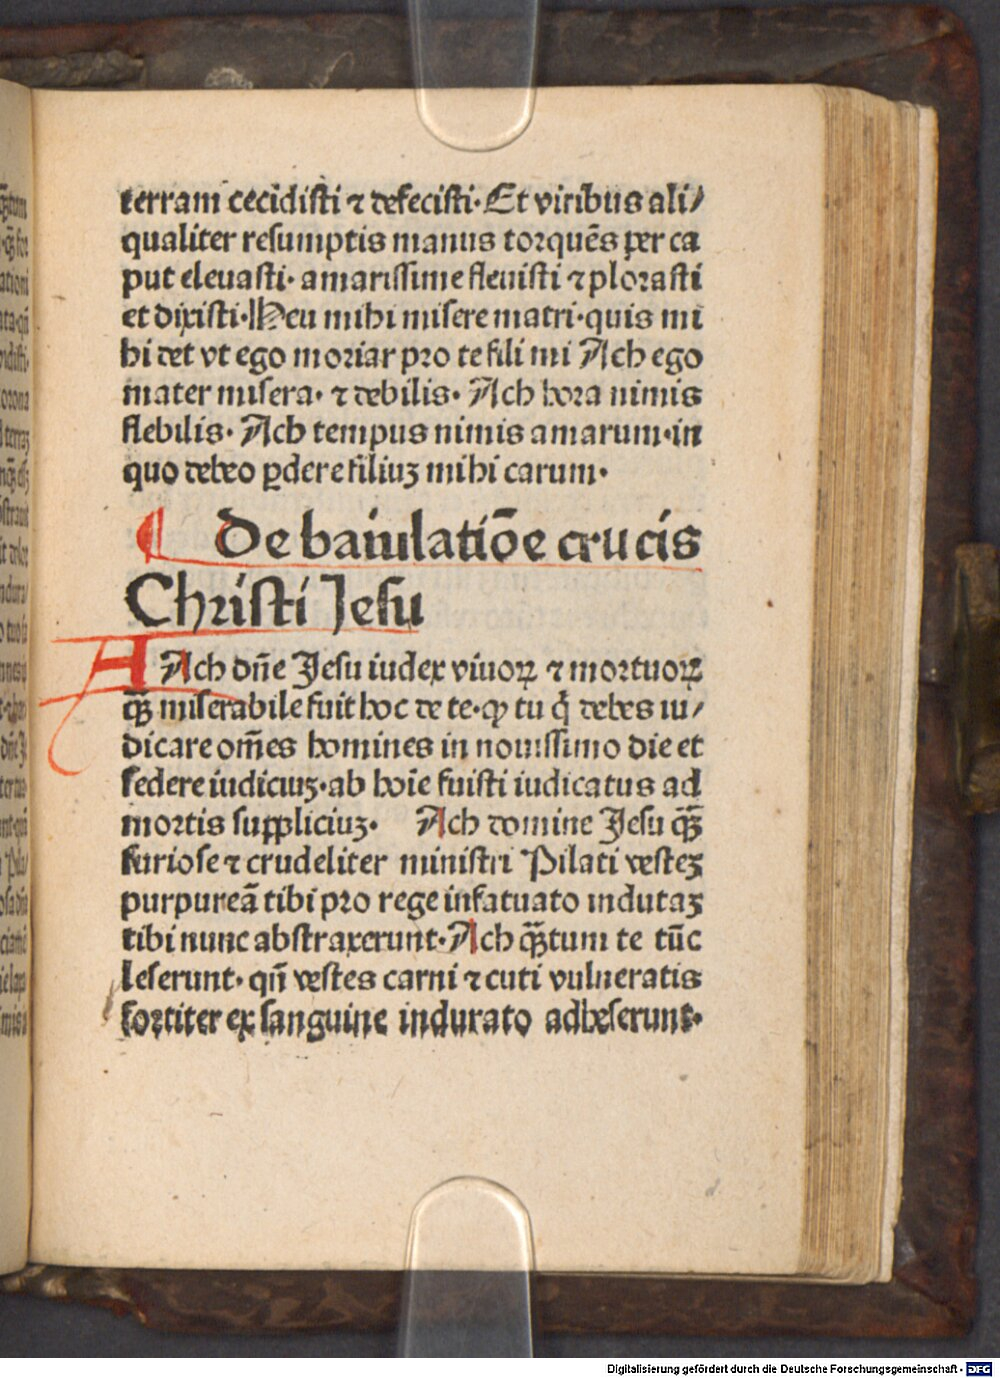 terram cecidisti ⁊ defecisti· Et viribus ali/
qualiter resumptis manus torquēs per ca
put eleuasti· amarissime fleuisti ⁊ plorasti
et dixisti· Heu mihi misere matri· quis mi
hi det vt ego moriar pro te fili mi Ach ego
mater misera· ⁊ debilis· Ach hora nimis
flebilis· Ach tempus nimis amarum· in
quo debeo ꝑdere filiuꝫ mihi carum·
De baiulatiōe crucis
Christi Jesu
A Ach dn̄e Jesu iudex viuoꝝ ⁊ mortuoꝝ
qꝫ̄ miserabile fuit hoc de te· ꝙ tu q̇ debes iu/
dicare om̄es homines in nouissimo die et
sedere iudiciuꝫ· ab hoīe fuisti iudicatus ad
mortis suppliciuꝫ· Ach domine Jesu qꝫ̄
furiose ⁊ crudeliter ministri Pilati vesteꝫ
purpureā tibi pro rege infatuato indutaꝫ
tibi nunc abstraxerunt· Ach qꝫ̄tum te tūc
leserunt· qn̄ vestes carni ⁊ cuti vulneratis
fortiter ex sanguine indurato adheserunt·
Digitalisierung gefördert durch die Deutsche Forschungsgemeinschaft - DFG